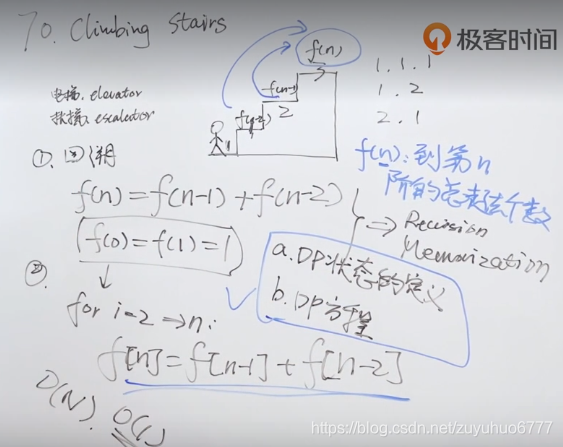 70. Climbing stairs
极客时间
f(n)
3
f(n-1)
2
f(n-2)
1
1. 1. 1
1. 2
2. 1
电梯. elevator
扶梯. escalator
①. 回溯
f(n): 到第n
阶的总走法个数
f(n) = f(n-1) + f(n-2)
f(0) = f(1) = 1
⇒ Recursion
Memorization
a. DP状态的定义
b. DP方程
②.
for i=2 → n:
f[n] = f[n-1] + f[n-2]
O(N). O(1)
https://blog.csdn.net/zuyuhuo6777